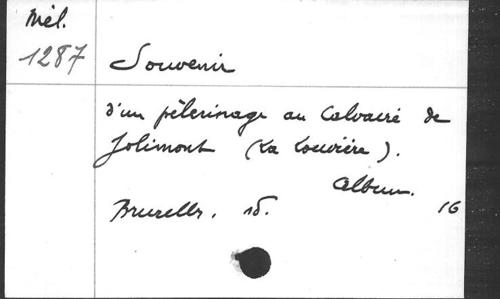 Mél.
1287
Souvenir
d'un pèlerinage au Calvaire de
Jolimont (La Louvière).
Album.
Bruxelles, sd.
16